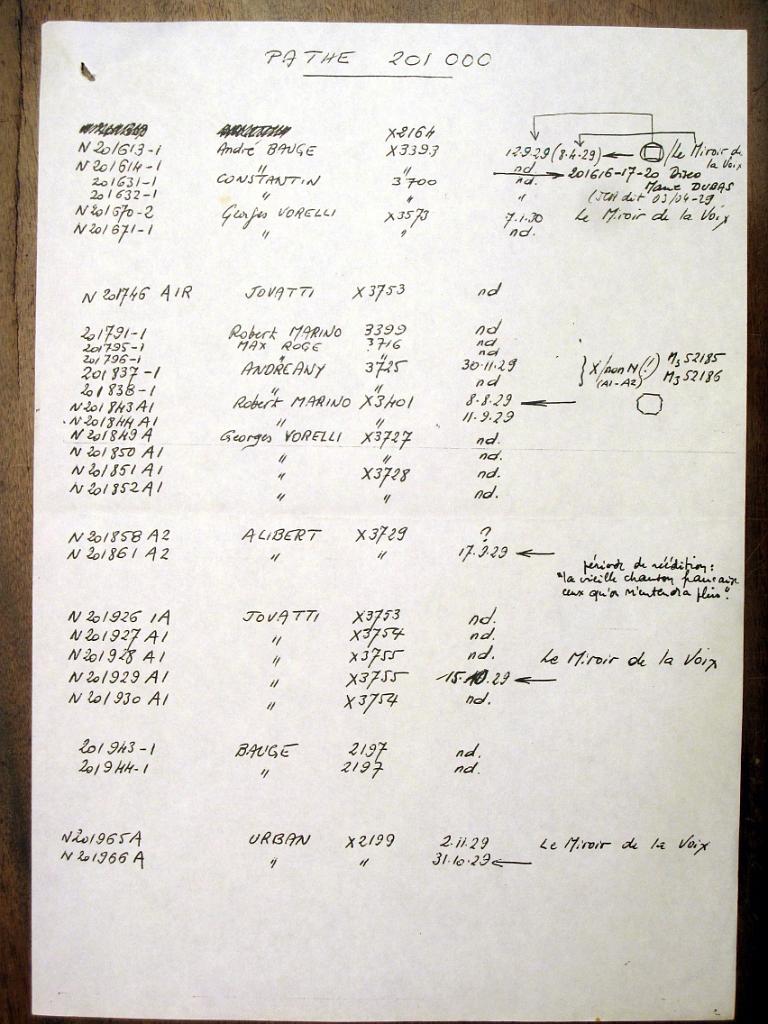 PATHE 201 000
X2164
N 201613-1 André BAUGE X3393 12.9.29 (8.4.29) ← /Le Miroir de la Voix
N 201614-1 " " nd
201631-1 CONSTANTIN 3700 nd. → 201616-17-20 Disco
201632-1 " " " Marie DUBAS
N 201670-2 Georges VORELLI X3573 7.1.30 Le Miroir de la Voix
N 201671-1 " " nd.
N 201746 AIR JOVATTI X3753 nd
201791-1 Robert MARINO 3399 nd
201795-1 MAX ROGE 3716 nd
201796-1 " " nd
201837-1 ANDREANY 3725 30.11.29 } X/non N (!) M3 52185
201838-1 " " nd (A1-A2) M3 52186
N 201843 A1 Robert MARINO X3401 8.8.29 ←
N 201844 A1 " " 11.9.29
N 201849 A Georges VORELLI X3727 nd.
N 201850 A1 " " nd.
N 201851 A1 " X3728 nd.
N 201852 A1 " " nd.
N 201858 A2 ALIBERT X3729 ?
N 201861 A2 " " 17.9.29 ←
période de réédition:
"la vieille chanson française
ceux qu'on n'entendra plus".
N 201926 1A JOVATTI X3753 nd.
N 201927 A1 " X3754 nd.
N 201928 A1 " X3755 nd. Le Miroir de la Voix
N 201929 A1 " X3755 15.10.29 ←
N 201930 A1 " X3754 nd.
201943-1 BAUGE 2197 nd.
201944-1 " 2197 nd.
N 201965 A URBAN X2199 2.11.29 Le Miroir de la Voix
N 201966 A " " 31.10.29 ←